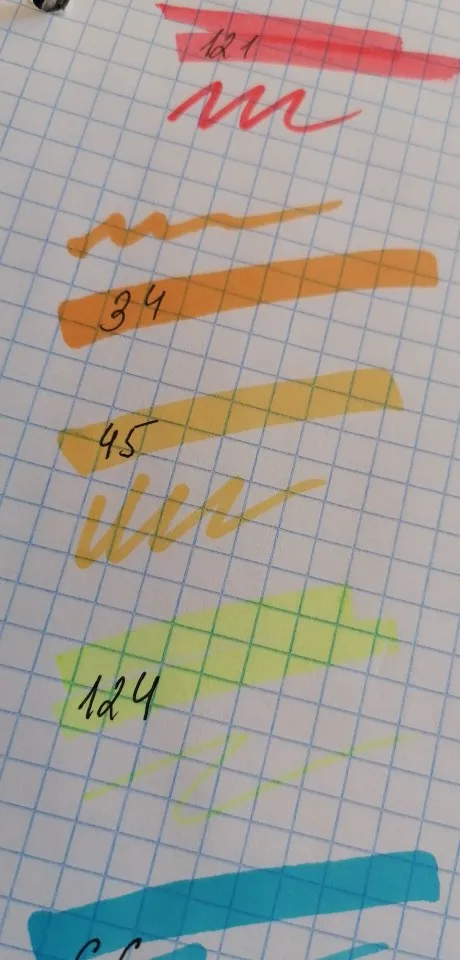 121
34
45
124